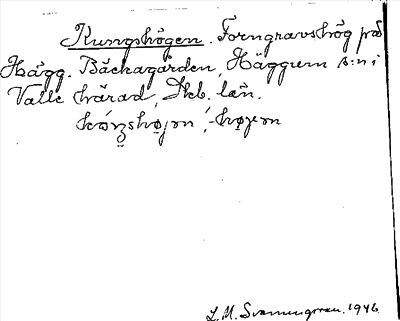 Kungshögen. Forngravshög på
Hägg. Bäckagården, Häggum s:n i
Valle härad, Skb. län.
L. M. Svanungren. 1946.